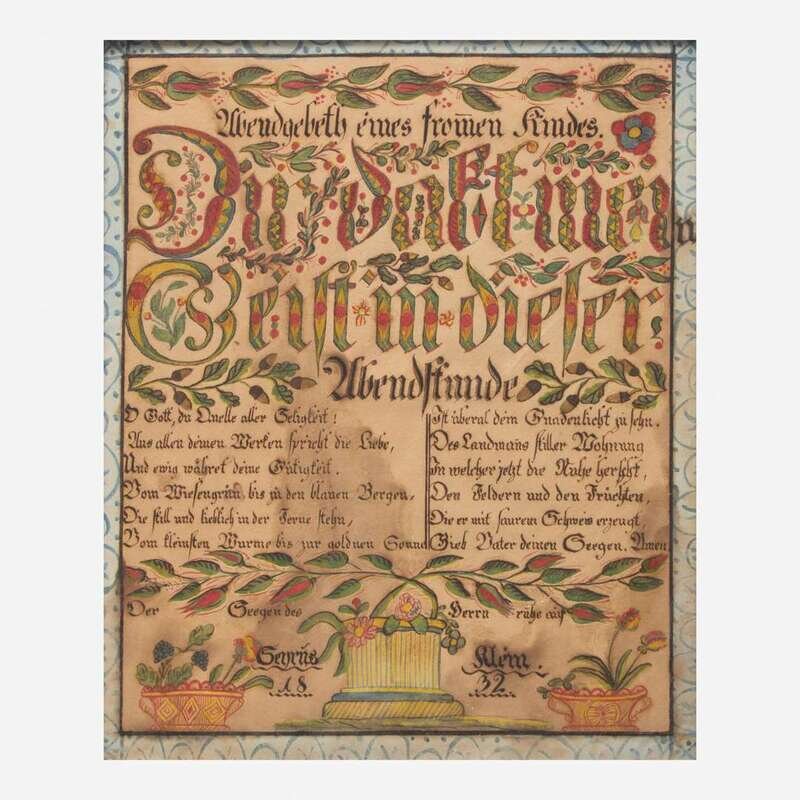 Abendgebeth eines from̄en Kindes.
Dir dankt mein
Geist in dieser
Abendstunde
O Gott, du Quelle aller Seligkeit!
Aus allen deinen Werken spricht die Liebe,
Und ewig währet deine Gütigkeit.
Vom Wiesengrün, bis zu den blauen Bergen,
Die still und lieblich in der Ferne stehn,
Vom kleinsten Wurme bis zur goldnen Sonne
Ist überal dein Gnadenlicht zu sehn.
Des Landmans stiller Wohnung
In welcher jetzt die Ruhe herscht,
Den Feldern und den Früchten,
Die er mit saurem Schweis erzeugt,
Gieb Vater deinen Seegen. Amen.
Der Seegen des Herrn ruhe auf
Seyrus Klein.
18 32